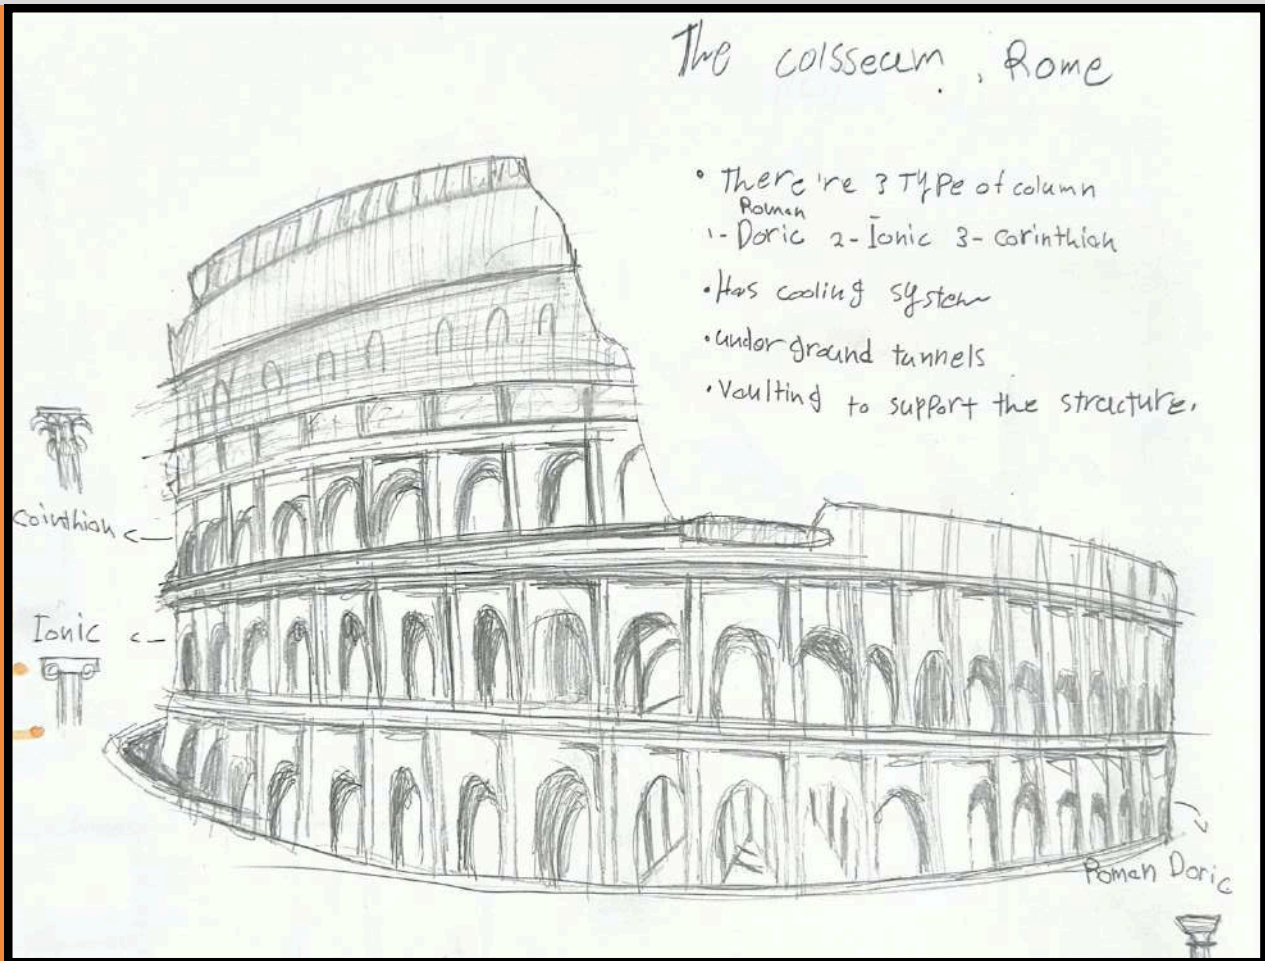 The colsseum, Rome
• There're 3 Type of column
Roman
1- Doric 2- Ionic 3- corinthian
• Has cooling system
• underground tunnels
• Vaulting to support the structure.
Cointhian
Ionic
Roman Doric